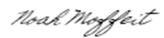 Noah Moffeit